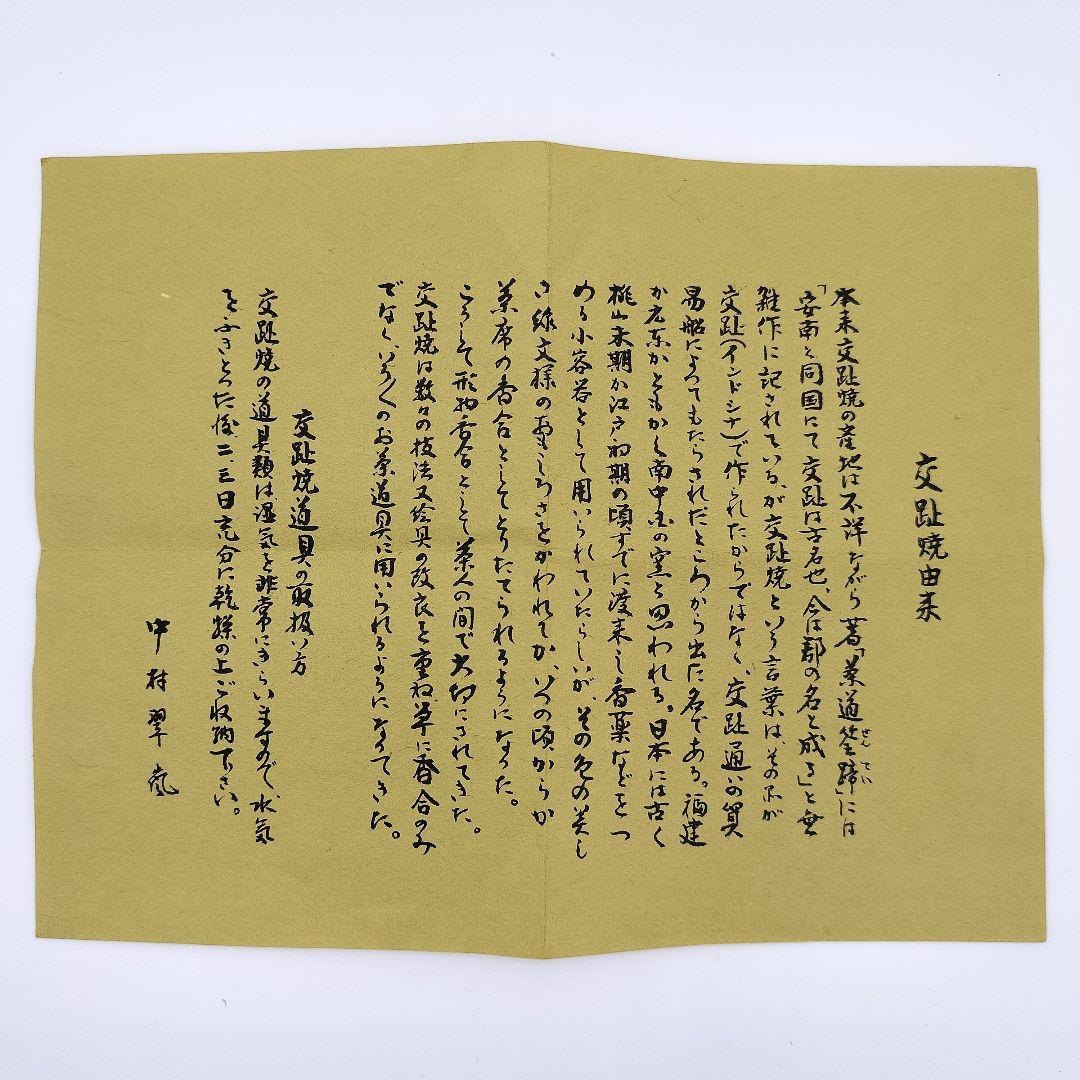 交趾焼由来
本来交趾焼の産地は不詳ながら著「茶道筌蹄」には
せんてい
「安南と同国にて交趾は古名也、今は郡の名と成る」と無
雑作に記されている、が交趾焼という言葉は、その品が
交趾(インドシナ)で作られたからではなく、交趾通いの貿
易船によってもたらされたところから出た名である。福建
か広東かともかく南中国の窯と思われる。日本には古く
桃山末期か江戸初期の頃すでに渡来し香薬などをつ
める小容器として用いられていたらしいが、その色の美し
さ線文様のおもしろさをかわれてか、いつの頃からか
茶席の香合としてとりたてられるようになった。
こうして形物香合として茶人の間で大切にされてきた。
交趾焼は数々の技法又絵具の改良を重ね、単に香合のみ
でなく、いろくのお茶道具に用いられるようになってきた。
交趾焼道具の取扱い方
交趾焼の道具類は湿気を非常にきらいますので、水気
をふきとった後二三日充分に乾燥の上ご収納下さい。
中村翠嵐